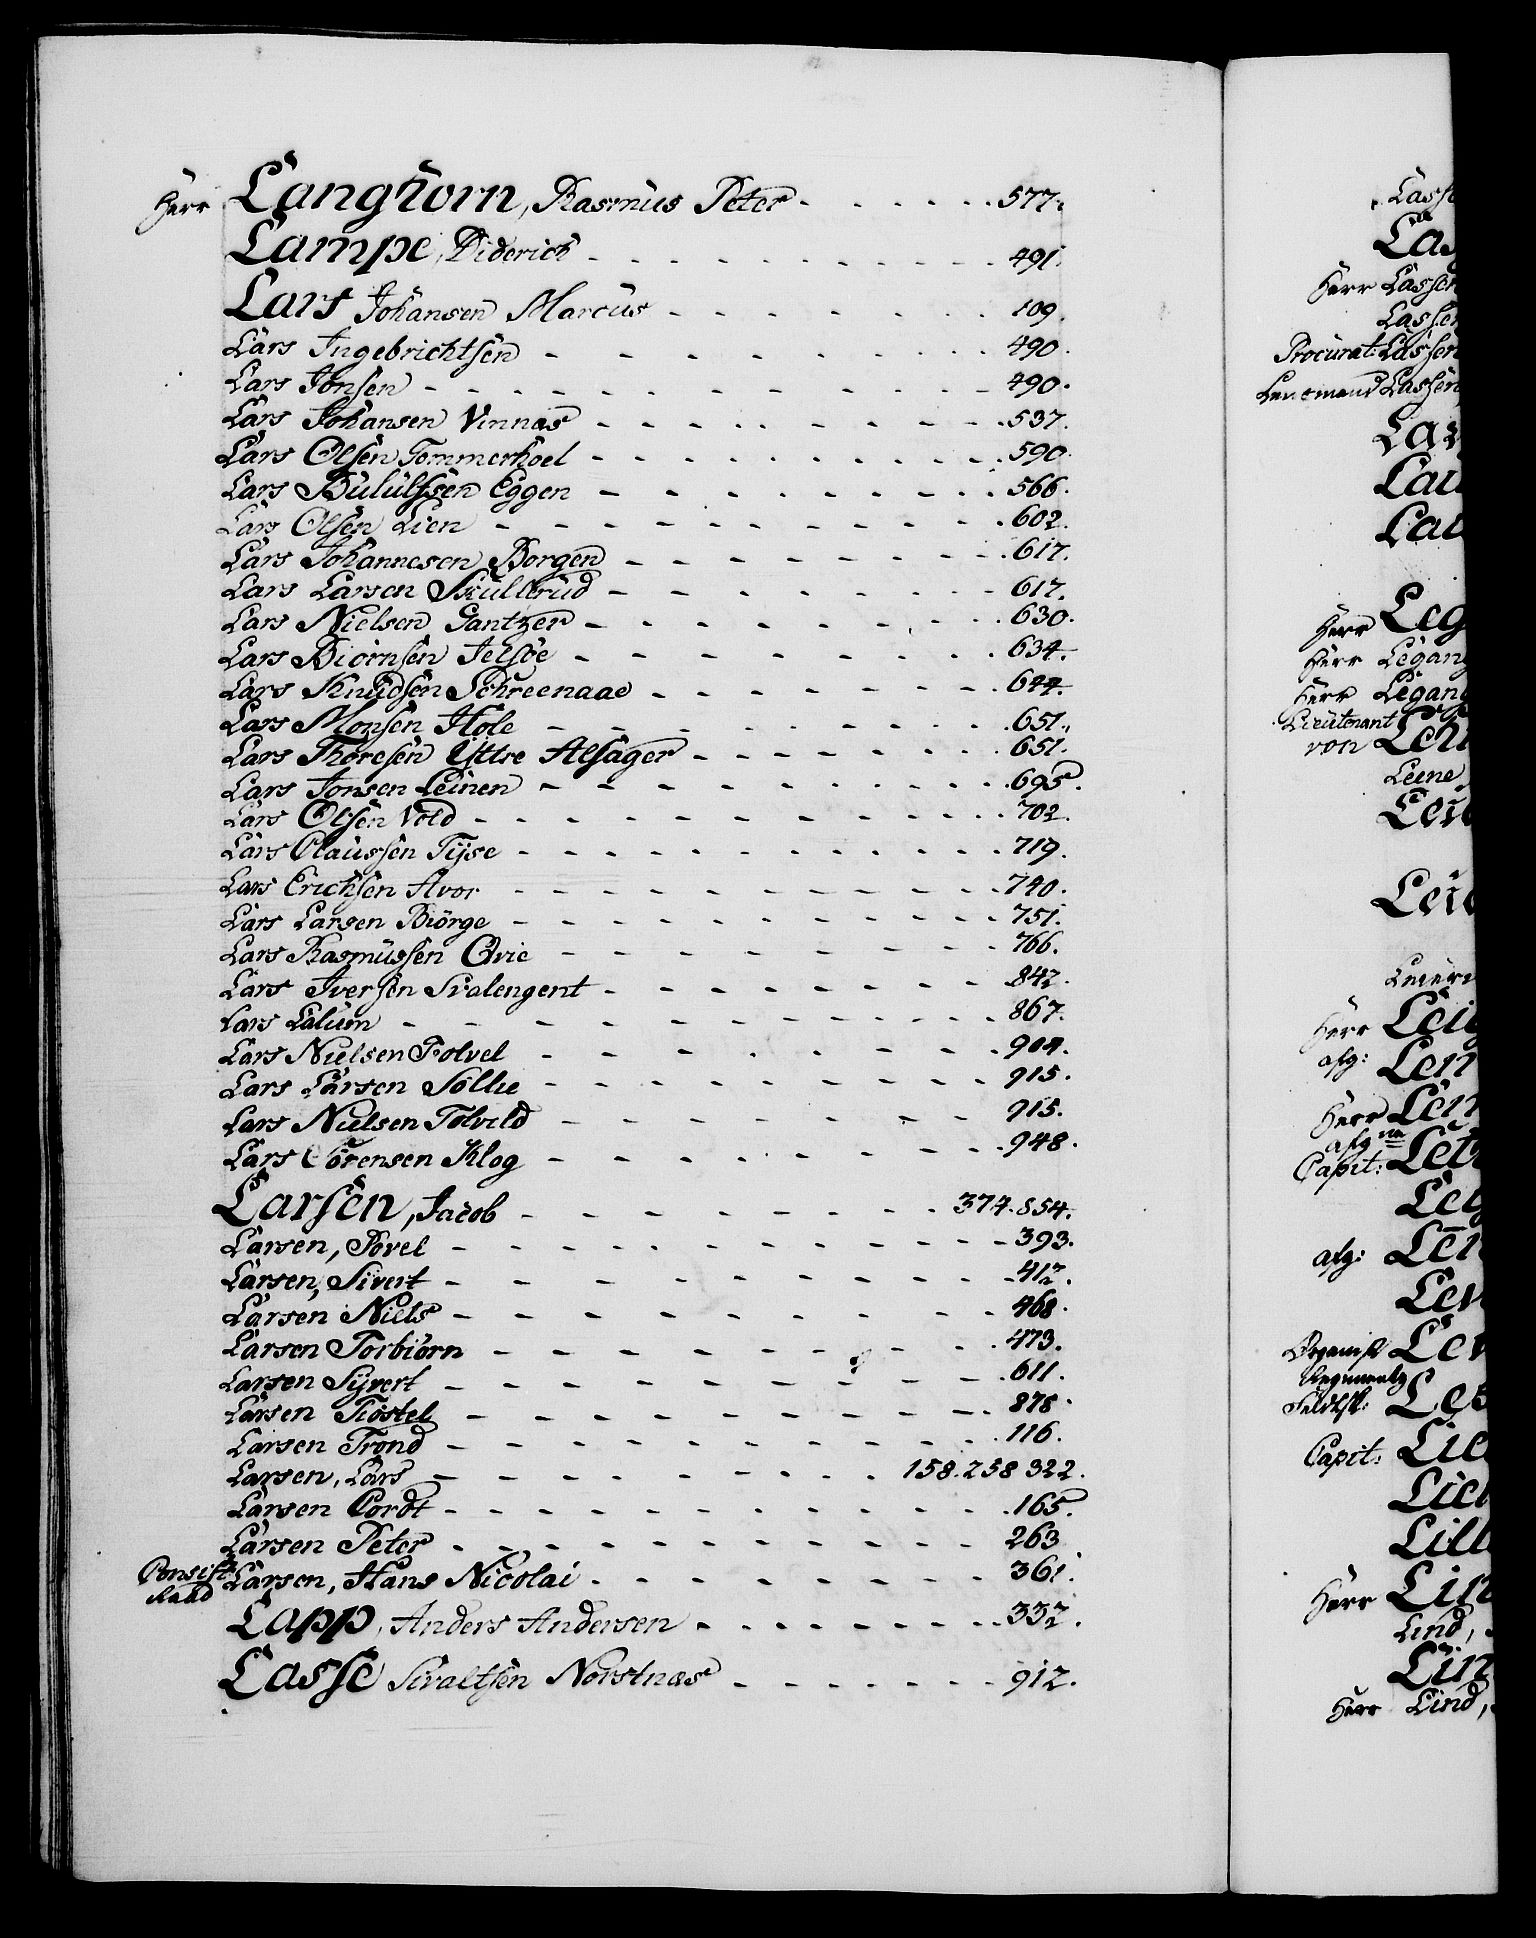 Herr Langhorn, Rasmus Peter - - - - - 577.
Lampe, Diderich - - - - - 491.
Lars Johansen Marcus - - - - - 109.
Lars Ingebrichtsen - - - - - 490.
Lars Jonsen - - - - - 490.
Lars Johansen Vinnas - - - - - 537.
Lars Olsen Tommerhoel - - - - - 590.
Lars Bulultsen Eggen - - - - - 566.
Lars Olsen Lien - - - - - 602.
Lars Johannesen Borgen - - - - - 617.
Lars Larsen Skullerud - - - - - 617.
Lars Nielsen Gantzer - - - - - 630.
Lars Biørnsen Jelsøe - - - - - 634.
Lars Knudsen Schreenaae - - - - - 644.
Lars Monsen Hole - - - - - 651.
Lars Thoresen Yttre Alsager - - - - - 651.
Lars Jonsen Leinen - - - - - 695.
Lars Olsen Vold - - - - - 702.
Lars Olaussen Tyse - - - - - 719.
Lars Erichsen Avor - - - - - 740.
Lars Larsen Biörge - - - - - 751.
Lars Rasmussen Qvie - - - - - 766.
Lars Iversen Svalengent - - - - - 842.
Lars Lalum - - - - - 867.
Lars Nielsen Folvel - - - - - 904.
Lars Larsen Sollie - - - - - 915.
Lars Nielsen Tolvild - - - - - 915.
Lars Sörensen Klog - - - - - 948.
Larsen, Jacob - - - - - 374. 854.
Larsen, Povel - - - - - 393.
Larsen, Sivert - - - - - 412.
Larsen Niels - - - - - 468.
Larsen Torbiørn - - - - - 473.
Larsen Syvert - - - - - 611.
Larsen Tiostel - - - - - 878.
Larsen Trond - - - - - 116.
Larsen, Lars - - - - - 158. 258 322.
Larsen Cordt - - - - - 165.
Larsen Peter - - - - - 263
Consist: Raad Larsen, Hans Nicolai - - - - - 361.
Lapp, Anders Andersen - - - - - 332.
Lasse Sivaltsen Norstnæs - - - - - 912.
Herr Lassen
Lassen
Procurat: Lassen
Lensmand Lassen
Herr Leg
Herr Legang
Herr Legang
Lieutenant
von
Leene
Herr Leig
afg: Len
Herr
afgne
Capit:
afg:
Organist
Regiments
Feldsk:
Capit:
Herr
Lind,
Herr Lind,